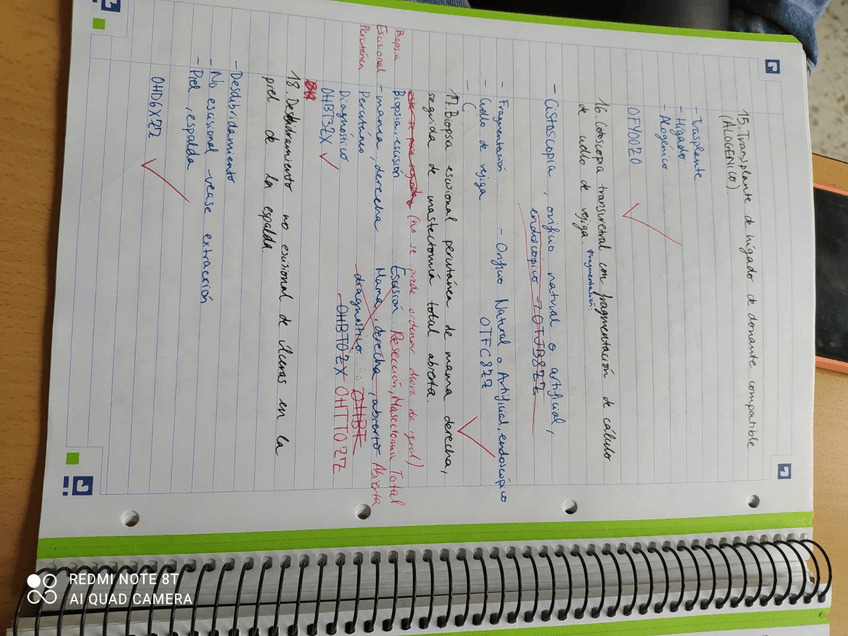 15. Transplante de hígado de donante compatible
(ALOGÉNICO)
- Trasplante
- Hígado
- Alogénico
0FY00Z0
16. Cistoscopia transuretral con fragmentación de cálculo
de cuello de vejiga. fragmentación
- Cistoscopia, orificio natural o artificial,
endoscopico → 0TJB8ZZ
- Fragmentación - Orificio Natural o Artificial, endoscópico
- Cuello de vejiga 0TFC8ZZ
- (
17. Biopsia escisional percutánea de mama derecha,
seguida de mastectomía total abierta.
(no se puede ordenar dará igual)
Biopsia
Escisional
Percutánea
Biopsia, escisión Escisión Resección, Masectomía Total
- mama, derecha Mama, derecha, abierto Abierta
Percutáneo - diagnóstico: 0HBT
Diagnóstico - 0HBT0ZX 0HTT0ZZ
0HBT3ZX
18. Desbridamiento no escisional de úlceras en la
piel de la espalda.
- Desbridamiento
- No escisional - vease extracción
- Piel, espalda
0HD6XZZ
REDMI NOTE 8T
AI QUAD CAMERA